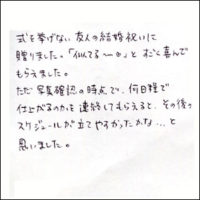 式を挙げない友人の結婚祝いに
贈りました。「似てる〜〜」と すごく喜んで
もらえました。
ただ写真確認の時点で、何日程で
仕上がるのかを連絡してもらえると、その後の
スケジュールが立てやすかったかな…と
思いました。